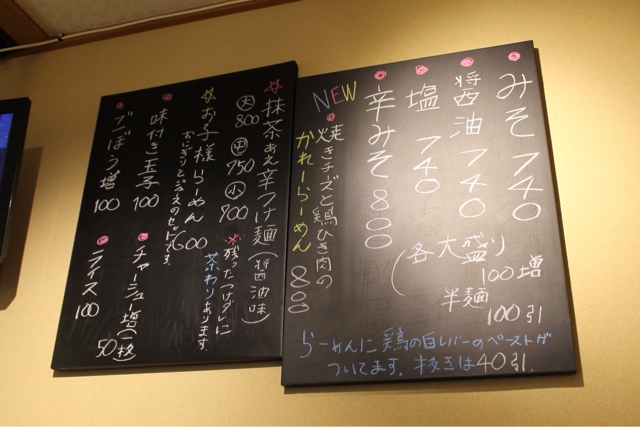 みそ 740
醤油 740
塩 740
辛みそ 800
(各大盛り 100増
半麺 100引
NEW
焼きチーズと鶏ひき肉の
かれーらーめん 800
らーめんに鶏の白レバーのペーストが
ついてます。抜きは40引.
抹茶あえ辛つけ麺(醤油味)
大 800 中 750 小 700
※残ったつけダレに
茶わりあります。
お子様らーめん 600
おにぎりとジュースのセットです。
味付き玉子 100
チャーシュー増(一枚) 50
ごぼう増 100
ライス 100